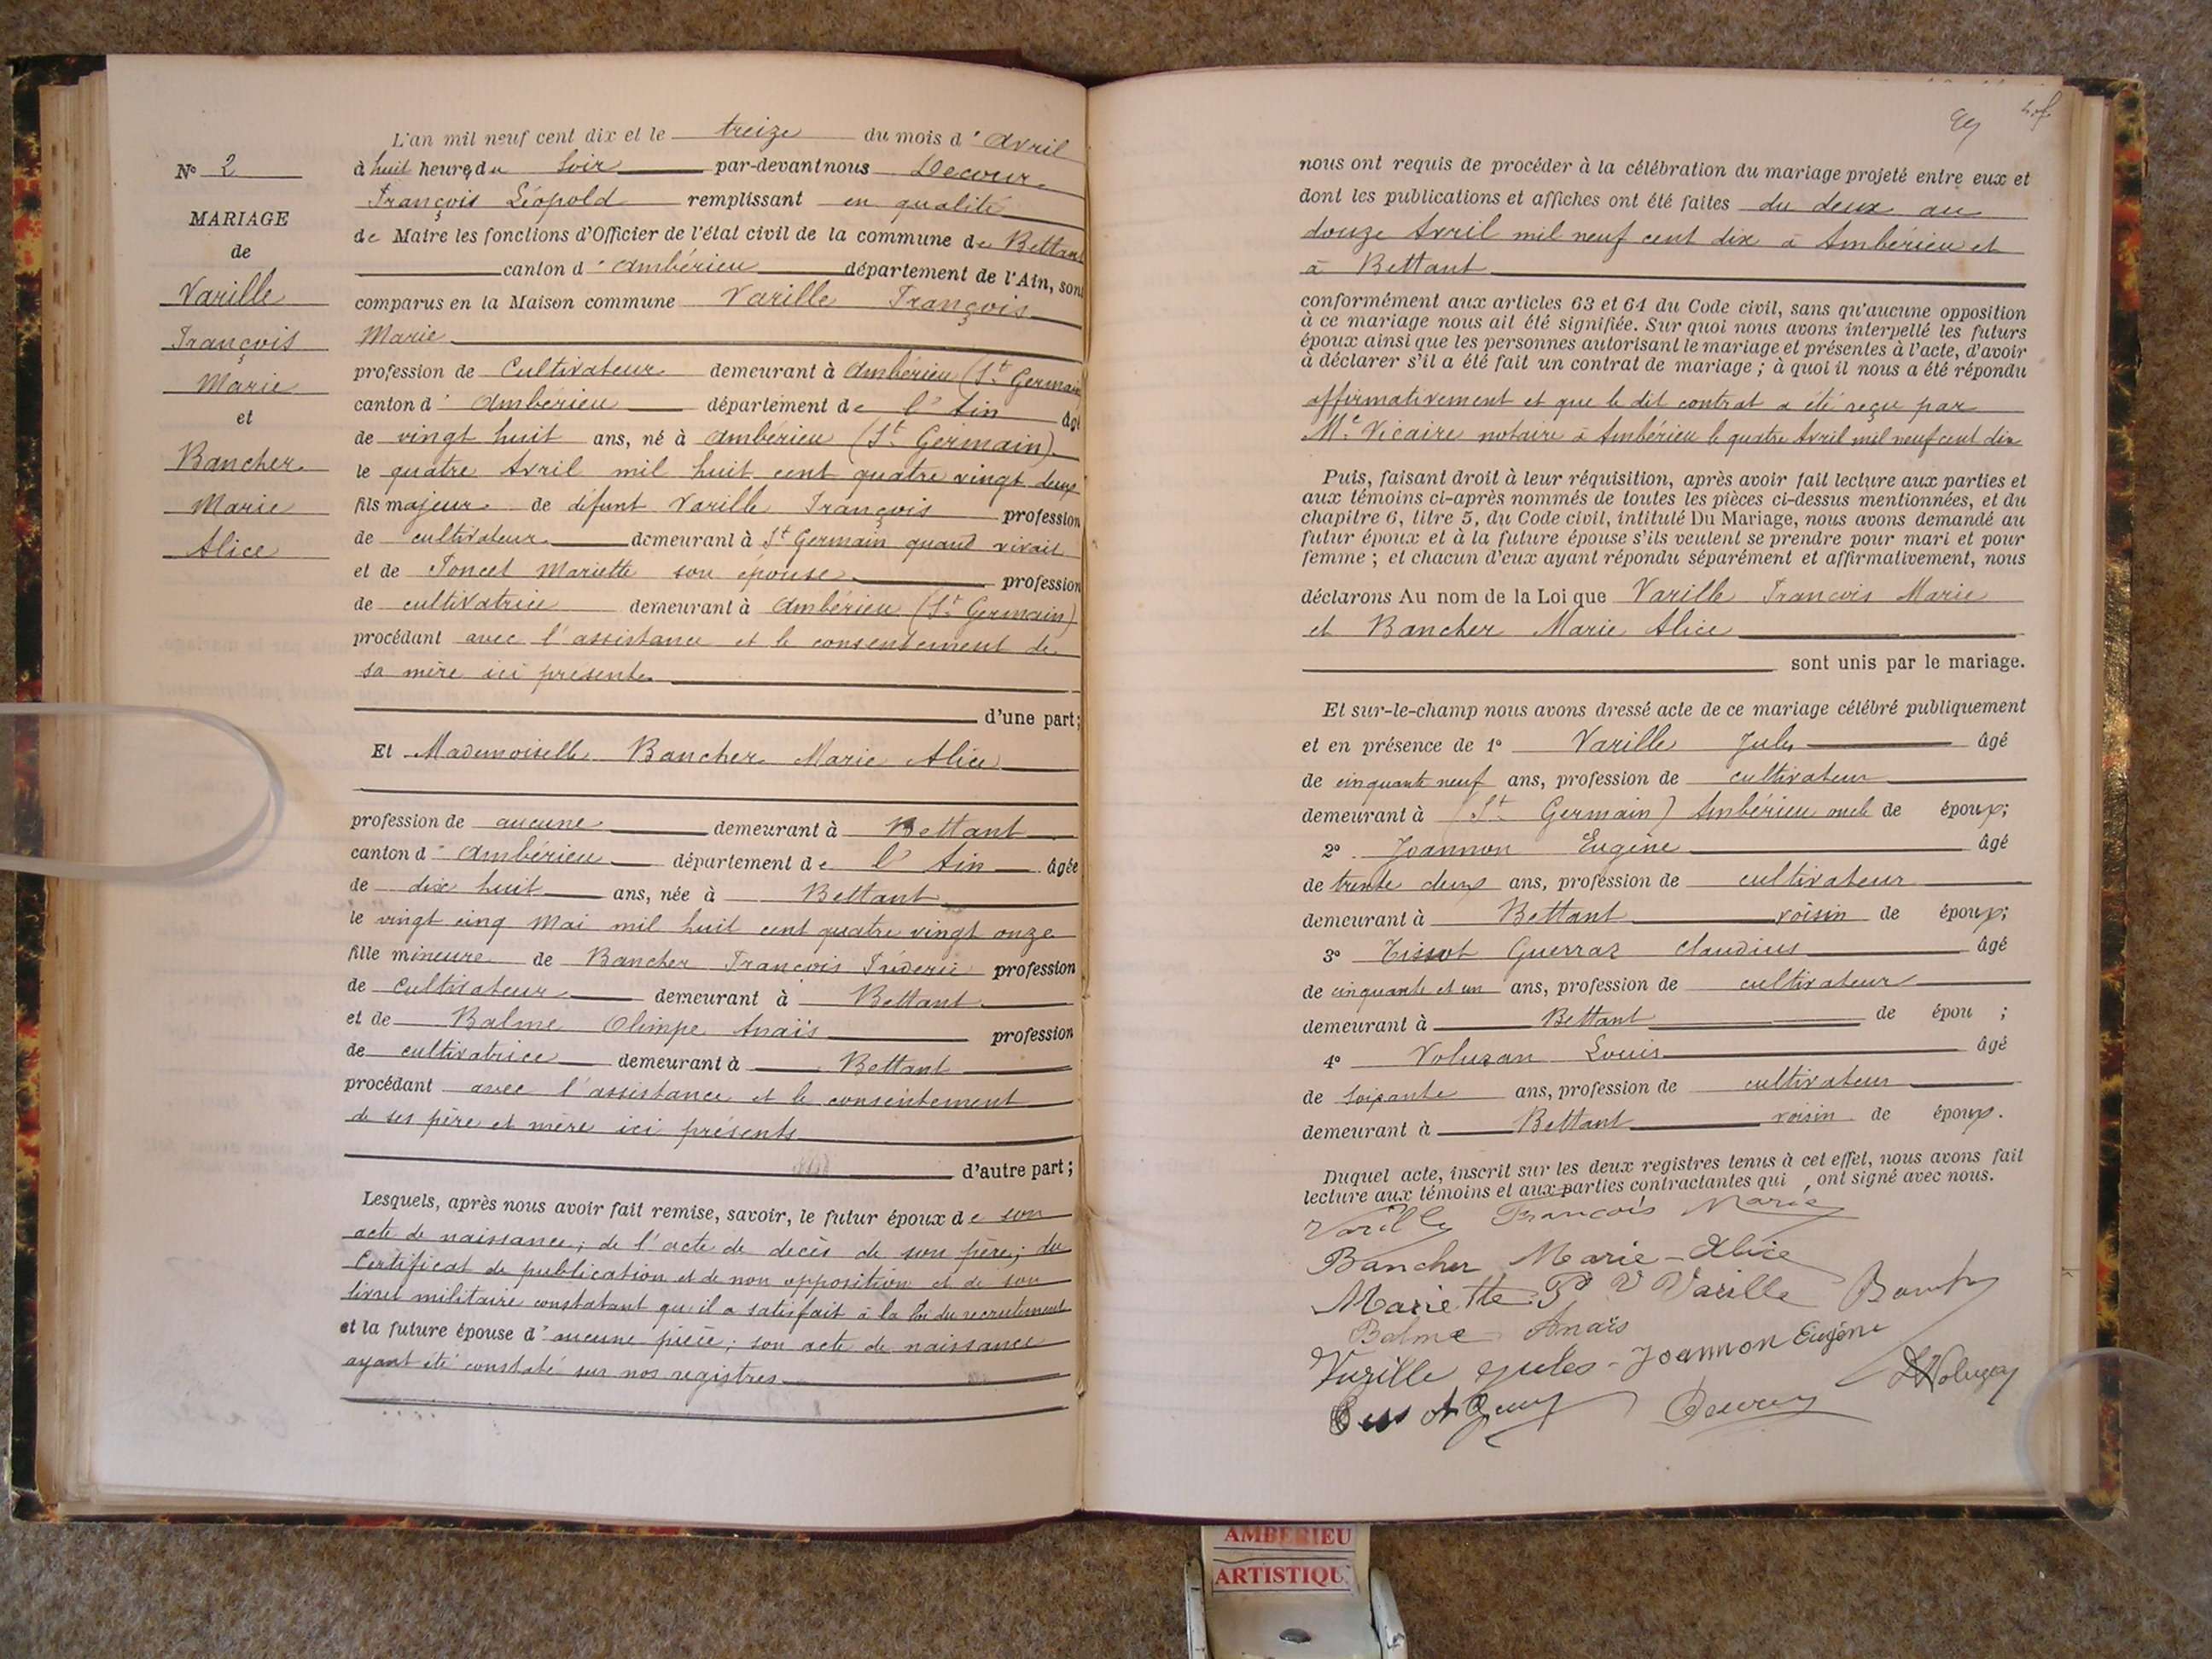 N° 2
MARIAGE
de
Varille
François
Marie
et
Bancher
Marie
Alice
L'an mil neuf cent dix et le treize du mois d'Avril
à huit heure du soir par-devant nous Decour
François Léopold remplissant en qualité
de Maire les fonctions d'Officier de l'état civil de la commune de Bettant
canton d'Ambérieu département de l'Ain, sont
comparus en la Maison commune Varille François
Marie
profession de Cultivateur demeurant à Ambérieu (St Germain
canton d'Ambérieu département de l'Ain âgé
de vingt huit ans, né à Ambérieu (St Germain)
le quatre Avril mil huit cent quatre vingt deux
fils majeur de défunt Varille François profession
de cultivateur demeurant à St Germain quand vivait
et de Poncet Mariette son épouse profession
de cultivatrice demeurant à Ambérieu (St Germain)
procédant avec l'assistance et le consentement de
sa mère ici présente
d'une part;
Et Mademoiselle Bancher Marie Alice
profession de aucune demeurant à Bettant
canton d'Ambérieu département de l'Ain âgée
de dix huit ans, née à Bettant
le vingt cinq Mai mil huit cent quatre vingt onze
fille mineure de Bancher François Fréderic profession
de Cultivateur demeurant à Bettant
et de Balme Olimpe Anaïs profession
de cultivatrice demeurant à Bettant
procédant avec l'assistance et le consentement
de ses père et mère ici présents
d'autre part;
Lesquels, après nous avoir fait remise, savoir, le futur époux de son
acte de naissance; de l'acte de decès de son père; du
Certificat de publication et de non opposition et de son
livret militaire constatant qu'il a satisfait à la loi du recrutement
et la future épouse d'aucune pièce; son acte de naissance
ayant été constaté sur nos registres
nous ont requis de procéder à la célébration du mariage projeté entre eux et
dont les publications et affiches ont été faites du deux au
douze Avril mil neuf cent dix à Ambérieu et
à Bettant
conformément aux articles 63 et 64 du Code civil, sans qu'aucune opposition
à ce mariage nous ait été signifiée. Sur quoi nous avons interpellé les futurs
époux ainsi que les personnes autorisant le mariage et présentes à l'acte, d'avoir
à déclarer s'il a été fait un contrat de mariage; à quoi il nous a été répondu
affirmativement et que le dit contrat a été reçu par
Me Vicaire notaire à Ambérieu le quatre Avril mil neuf cent dix
Puis, faisant droit à leur réquisition, après avoir fait lecture aux parties et
aux témoins ci-après nommés de toutes les pièces ci-dessus mentionnées, et du
chapitre 6, titre 5, du Code civil, intitulé Du Mariage, nous avons demandé au
futur époux et à la future épouse s'ils veulent se prendre pour mari et pour
femme; et chacun d'eux ayant répondu séparément et affirmativement, nous
déclarons Au nom de la Loi que Varille François Marie
et Bancher Marie Alice
sont unis par le mariage.
Et sur-le-champ nous avons dressé acte de ce mariage célébré publiquement
et en présence de 1° Varille Jules âgé
de cinquante neuf ans, profession de cultivateur
demeurant à (St Germain) Ambérieu oncle de époux;
2° Joannon Eugène âgé
de trente deux ans, profession de cultivateur
demeurant à Bettant voisin de époux;
3° Tissot Guerraz Claudius âgé
de cinquante et un ans, profession de cultivateur
demeurant à Bettant de épou ;
4° Voluzan Louis âgé
de soixante ans, profession de cultivateur
demeurant à Bettant voisin de époux.
Duquel acte, inscrit sur les deux registres tenus à cet effet, nous avons fait
lecture aux témoins et aux parties contractantes qui ont signé avec nous.
Varille François Marie
Bancher Marie-Alice
Mariette P V Varille
Balme Anaïs
Varille Jules - Joannon Eugène
Decour
AMBERIEU
ARTISTIQU